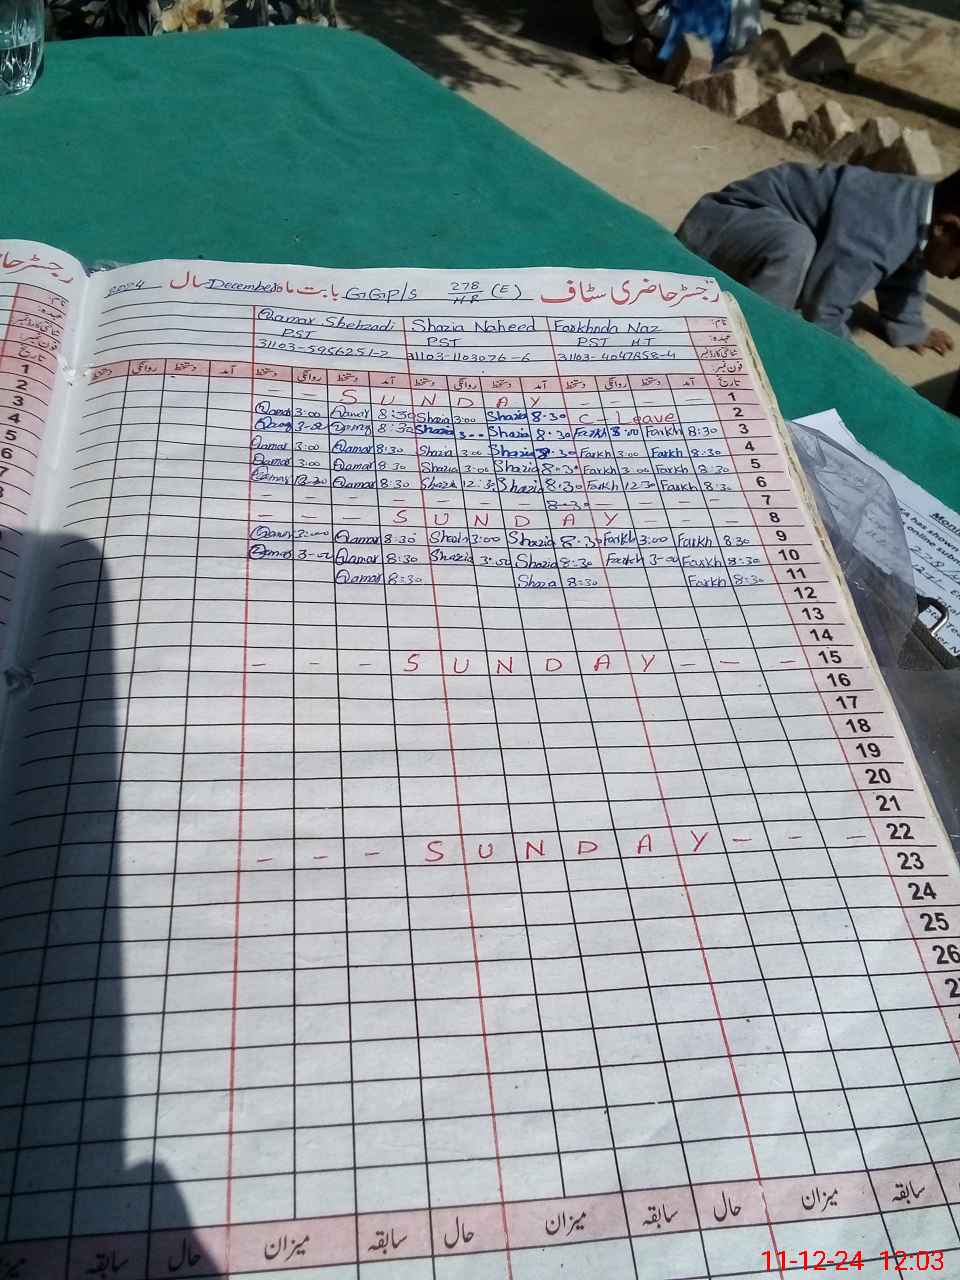 رجسٹر حاضری سٹاف 278/HR (E) GGP/S بابت ماہ December سال 2024
نام: Farkhnda Naz Shazia Naheed Qamar Shehzadi
عہدہ: PST HT PST PST
شناختی کارڈ نمبر 31103-4047858-4 31103-1103076-6 31103-5956251-2
فون نمبر
تاریخ آمد دستخط روانگی دستخط آمد دستخط روانگی دستخط آمد دستخط روانگی دستخط آمد دستخط روانگی دستخط
1 - - S U N D A Y - - - -
2 C-Leave 8:30 Shazia 3:00 Shazia 8:30 Qamar 3:00 Qamar
3 8:30 Farkh 3:00 Farkh 8:30 Shazia 3:00 Shazia 8:30 Qamar 3:00 Qamar
4 8:30 Farkh 3:00 Farkh 8:30 Shazia 3:00 Shazia 8:30 Qamar 3:00 Qamar
5 8:30 Farkh 3:00 Farkh 8:30 Shazia 3:00 Shazia 8:30 Qamar 3:00 Qamar
6 8:30 Farkh 12:30 Farkh 8:30 Shazia 12:30 Shazia 8:30 Qamar 12:30 Qamar
7 - - - 8:30 - - - -
8 - - - S U N D A Y - - -
9 8:30 Farkh 3:00 Farkh 8:30 Shazia 3:00 Shazia 8:30 Qamar 3:00 Qamar
10 8:30 Farkh 3:00 Farkh 8:30 Shazia 3:00 Shazia 8:30 Qamar 3:00 Qamar
11 8:30 Farkh 8:30 Shazia 8:30 Qamar
12
13
14
15 - - - S U N D A Y - - -
16
17
18
19
20
21
22 - - - S U N D A Y - - -
23
24
25
26
سابقہ میزان حال سابقہ میزان حال سابقہ میزان حال سابقہ
11-12-24 12:03